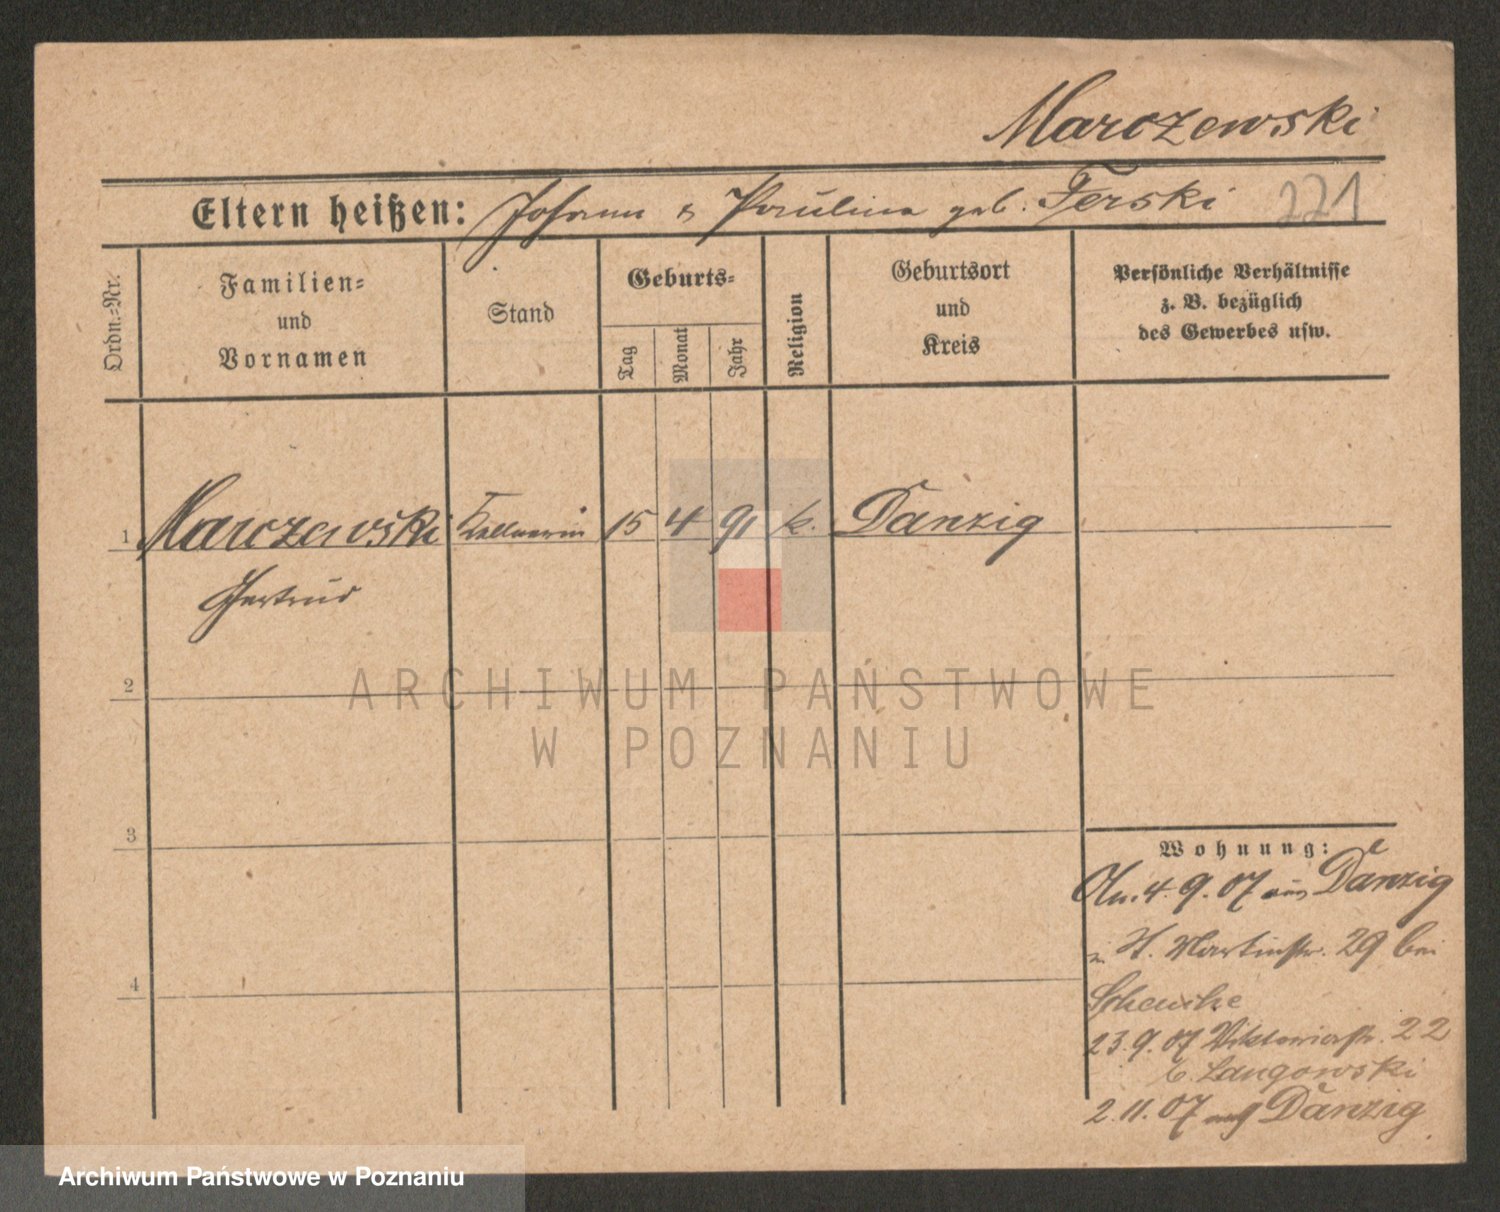 Marczewski
Eltern heißen: Johann & Paulina geb. Ferski 271
Ordn.=Nr.
Familien=
und
Vornamen
Stand
Geburts=
Tag
Monat
Jahr
Religion
Geburtsort
und
Kreis
Persönliche Verhältnisse
z. B. bezüglich
des Gewerbes usw.
1 Marczewski Kellnerin 15 4 91 k. Danzig
Gertrud
2
ARCHIWUM PAŃSTWOWE
W POZNANIU
3
Wohnung:
An. 4. 9. 07 aus Danzig
n. St. Martinstr. 29 bei
Schenke
23. 9. 07 Viktoriastr. 22
b. Langowski
2. 11. 07 nach Danzig
4
Archiwum Państwowe w Poznaniu